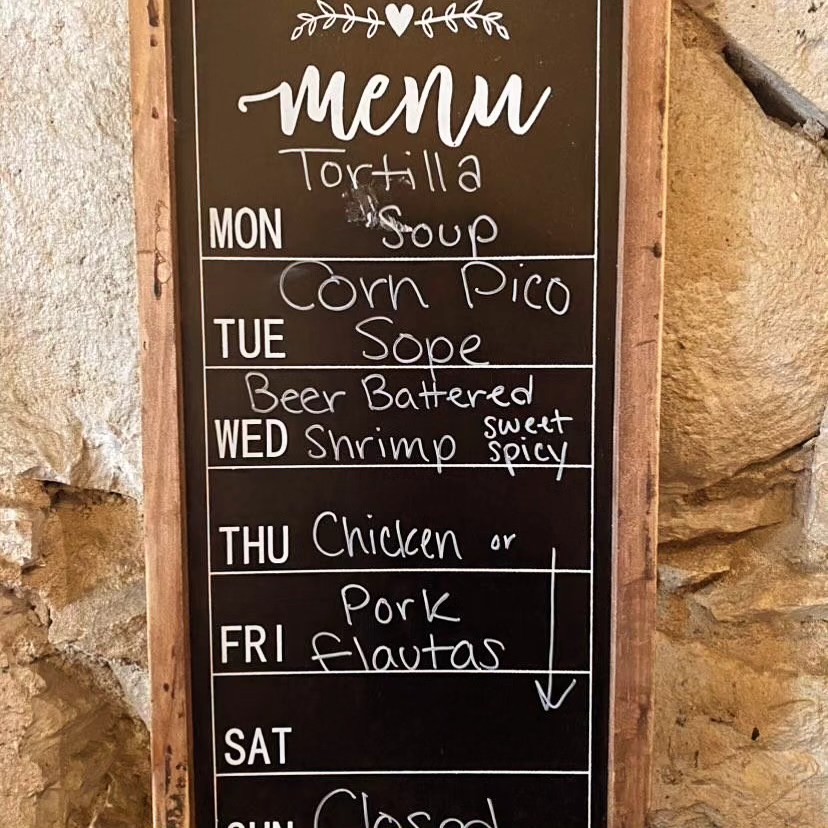 menu
Tortilla
MON Soup
Corn Pico
TUE Sope
Beer Battered
WED Shrimp sweet spicy
THU Chicken or
Pork
FRI flautas
SAT
SUN Closed